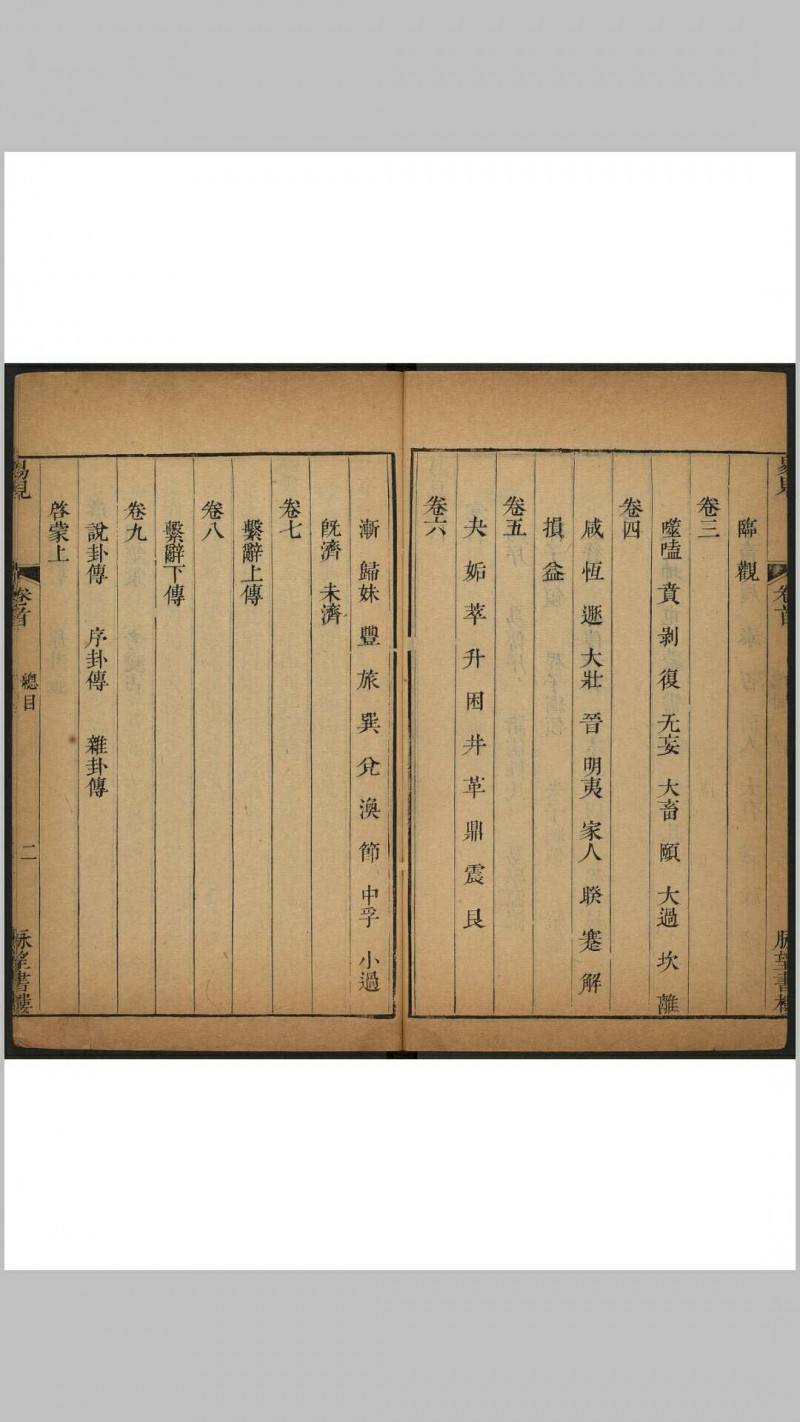 易見
卷首
脉望書樓
臨觀
卷三
噬嗑 賁 剥 復 无妄 大畜 頤 大過 坎 離
卷四
咸 恆 遯 大壯 晉 明夷 家人 睽 蹇 解
損 益
卷五
夬 姤 萃 升 困 井 革 鼎 震 艮
卷六
漸 歸妹 豐 旅 巽 兌 渙 節 中孚 小過
旣濟 未濟
卷七
繫辭上傳
卷八
繫辭下傳
卷九
說卦傳 序卦傳 雜卦傳
啓蒙上
易見
卷首
總目
二
脉望書樓